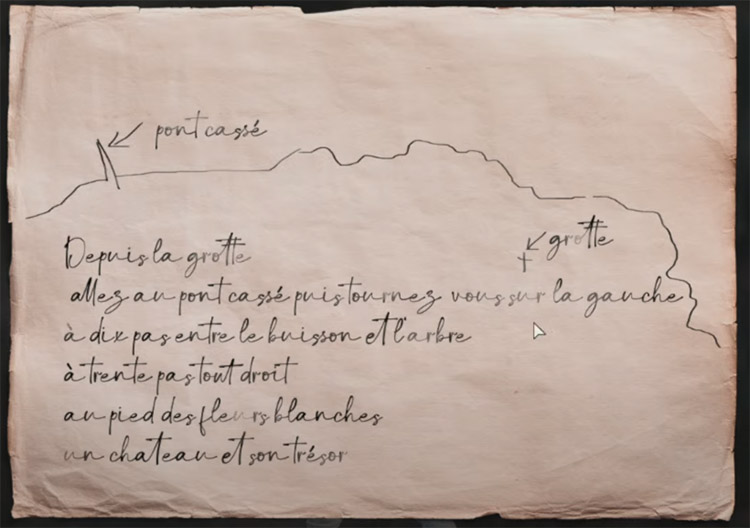 pont cassé
grotte
Depuis la grotte
allez au pont cassé puis tournez vous sur la gauche
à dix pas entre le buisson et l'arbre
à trente pas tout droit
au pied des fleurs blanches
un chateau et son trésor